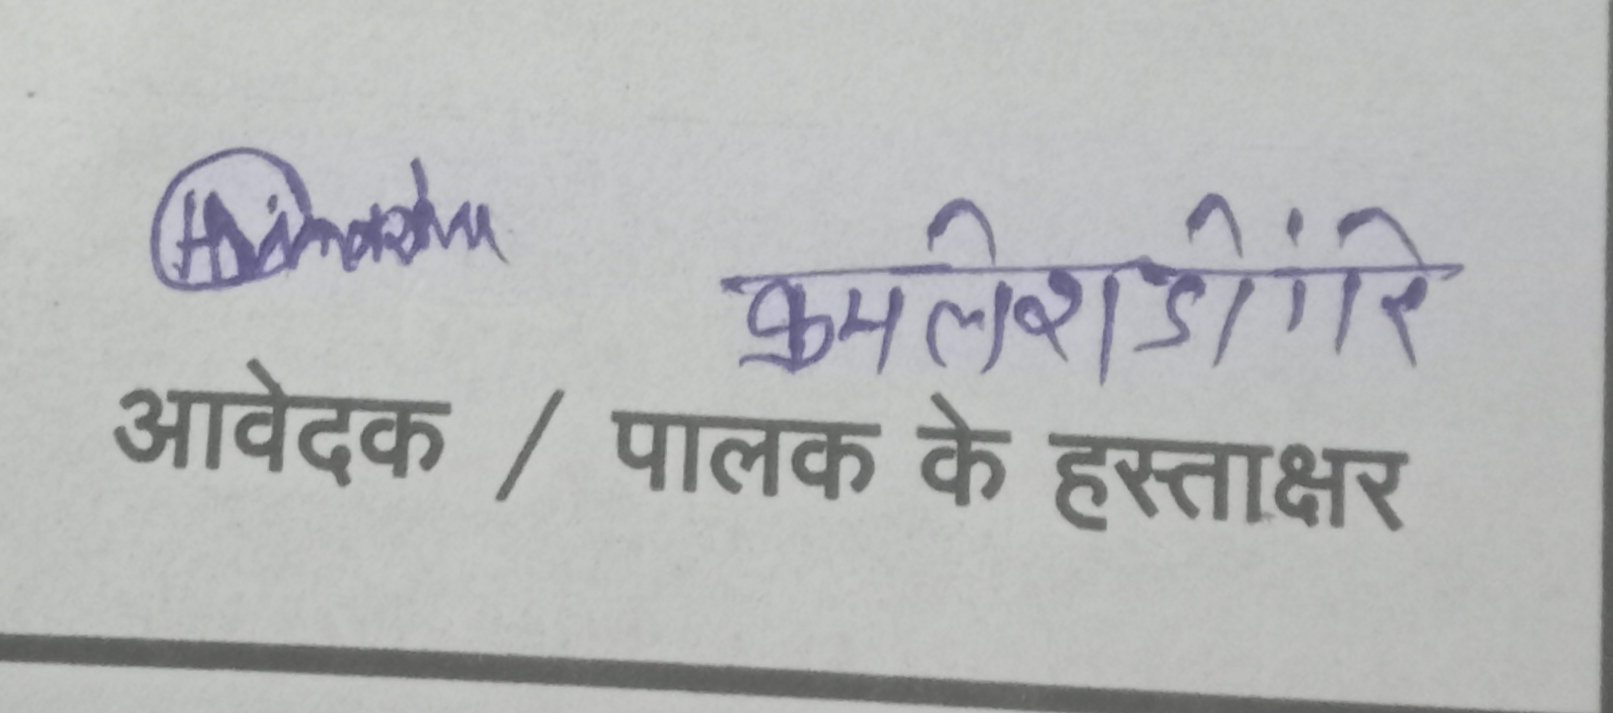 कमलेश डोंगरे
आवेदक / पालक के हस्ताक्षर